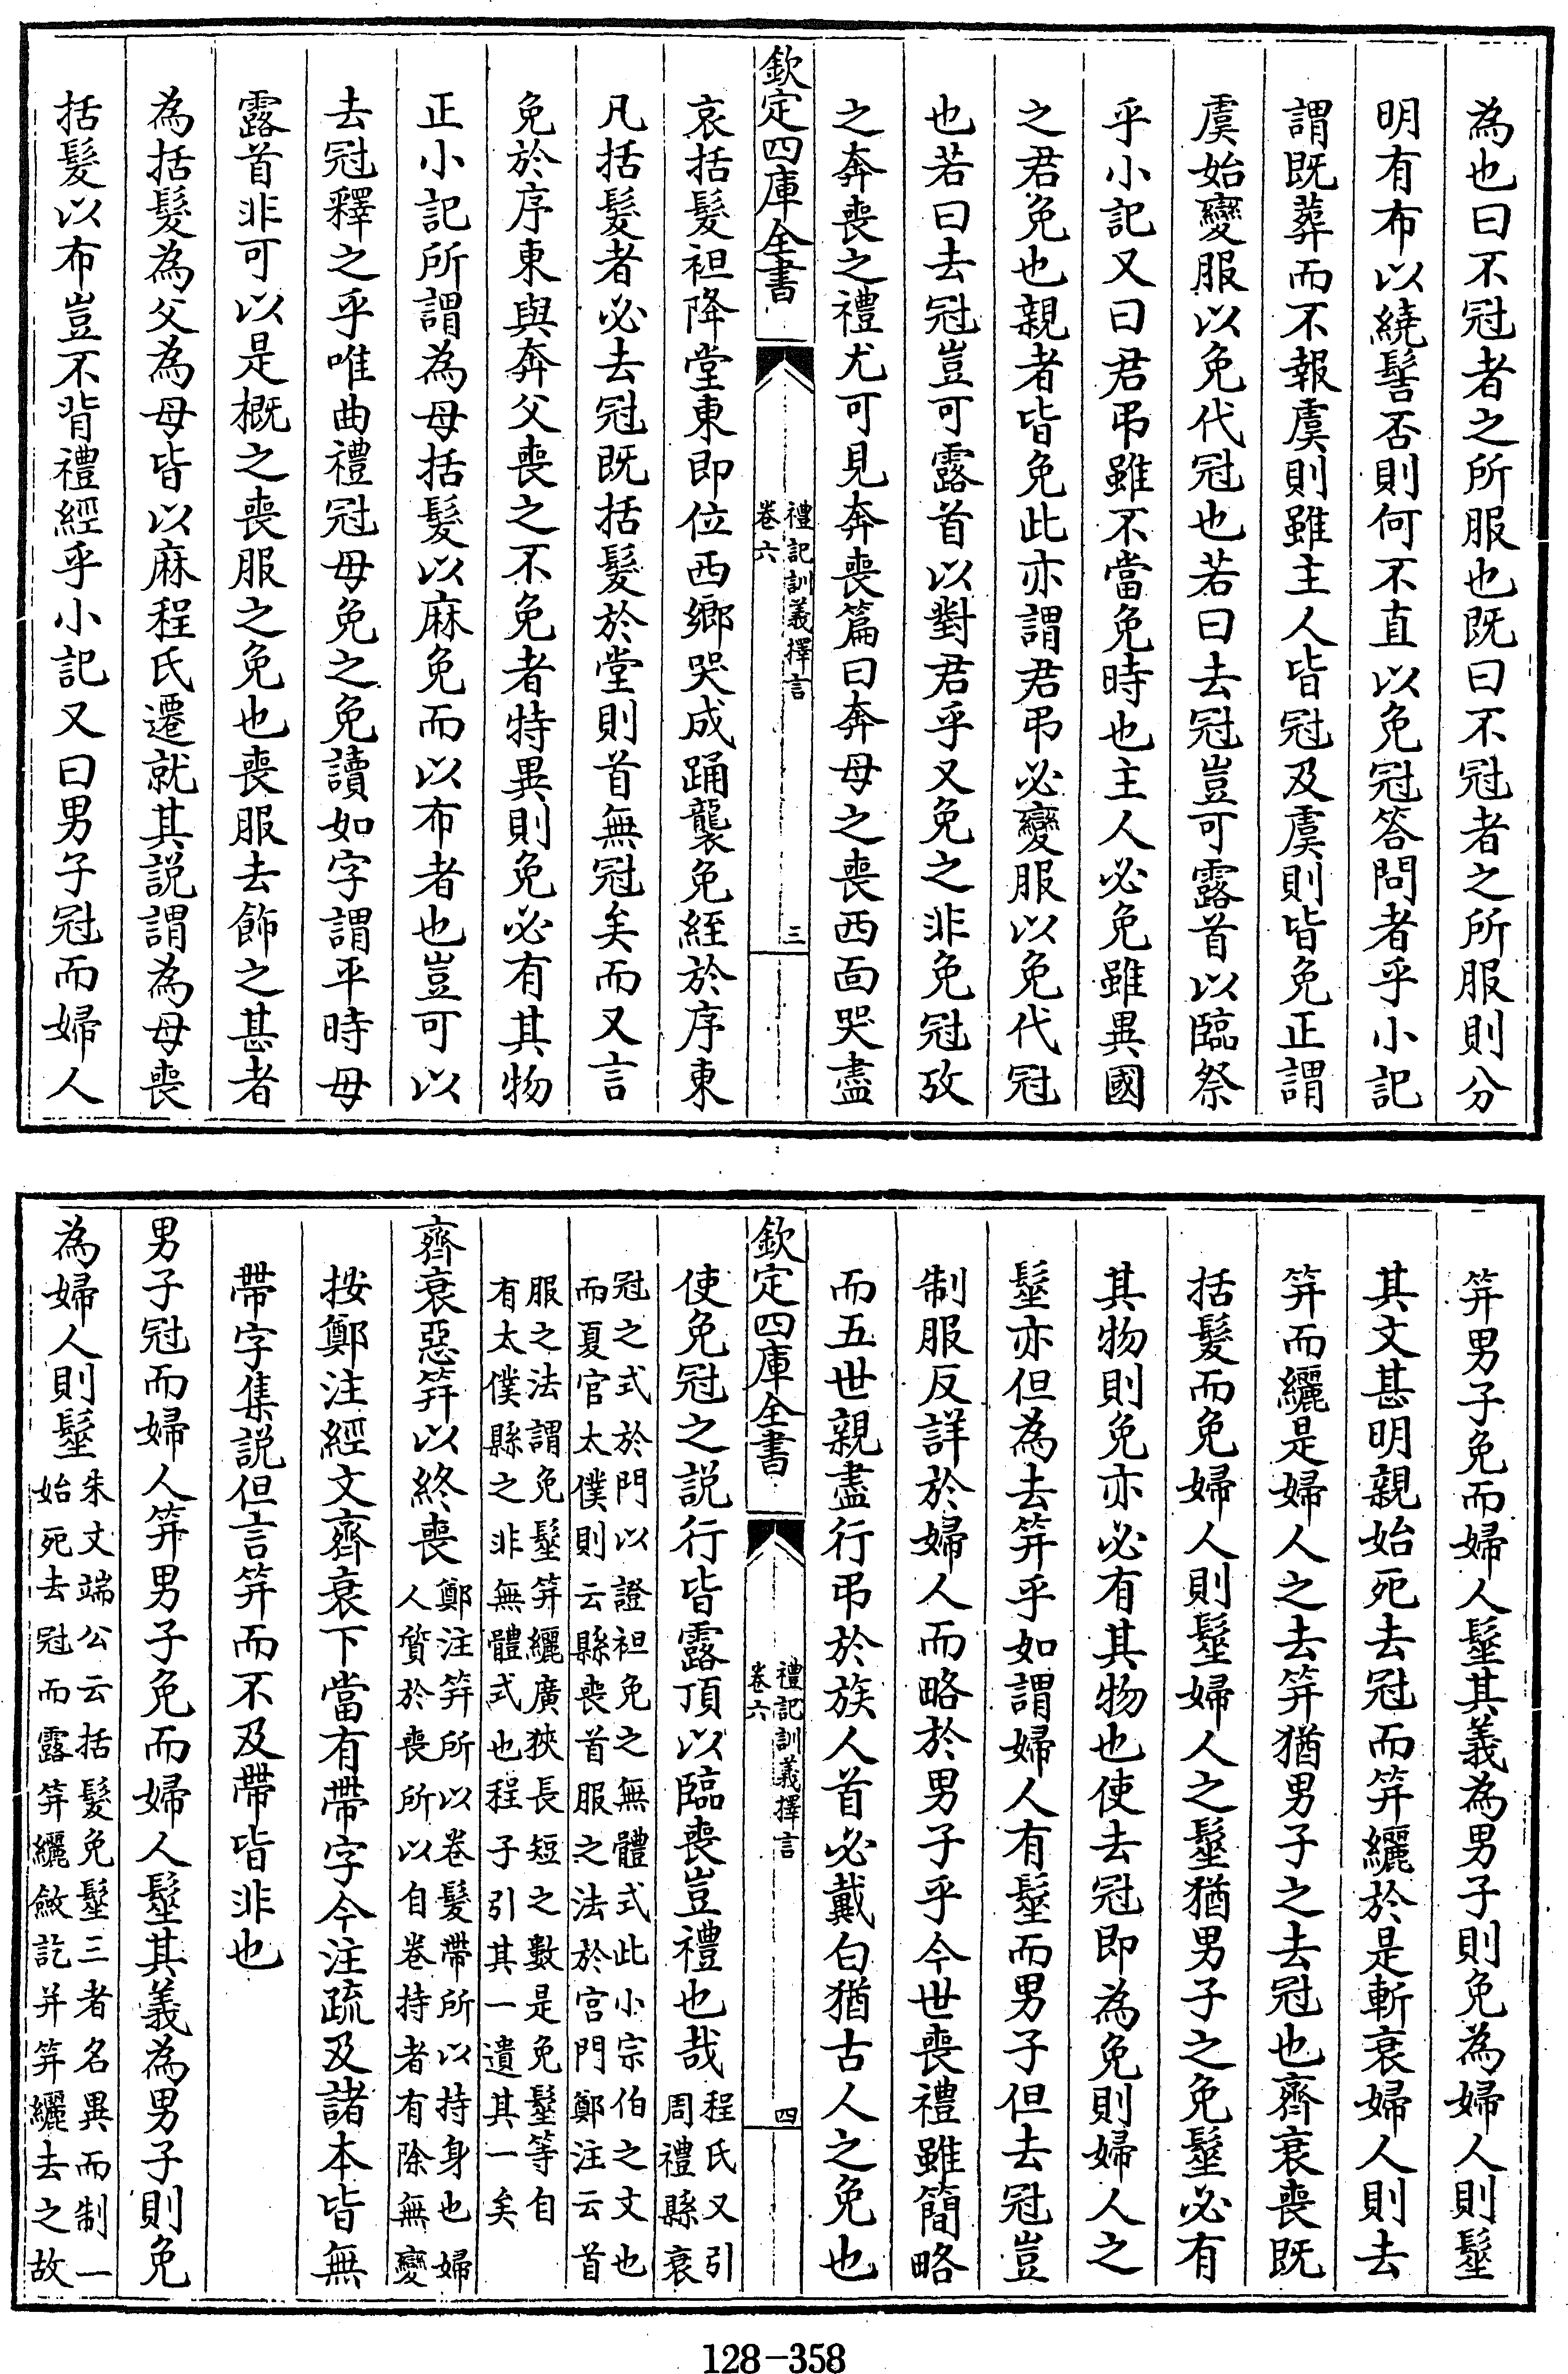 為也曰不冠者之所服也既曰不冠者之所服則分
明有布以繞髻否則何不直以免冠答問者乎小記
謂既葬而不報虞則雖主人皆冠及虞則皆免正謂
虞始變服以免代冠也若曰去冠豈可露首以臨祭
乎小記又曰君弔雖不當免時也主人必免雖異國
之君免也親者皆免此亦謂君弔必變服以免代冠
也若曰去冠豈可露首以對君乎又免之非免冠攷
之奔喪之禮尤可見奔喪篇曰奔母之喪西面哭盡
欽定四庫全書
禮記訓義擇言
卷六
三
哀括髮袒降堂東即位西鄉哭成踊襲免絰於序東
凡括髮者必去冠既括髮於堂則首無冠矣而又言
免於序東與奔父喪之不免者特異則免必有其物
正小記所謂為母括髮以麻免而以布者也豈可以
去冠釋之乎唯曲禮冠毋免之免讀如字謂平時毋
露首非可以是概之喪服之免也喪服去飾之甚者
為括髮為父為母皆以麻程氏遷就其説謂為母喪
括髮以布豈不背禮經乎小記又曰男子冠而婦人
笄男子免而婦人髽其義為男子則免為婦人則髽
其文甚明親始死去冠而笄纚於是斬衰婦人則去
笄而纚是婦人之去笄猶男子之去冠也齊衰喪既
括髮而免婦人則髽婦人之髽猶男子之免髽必有
其物則免亦必有其物也使去冠即為免則婦人之
髽亦但為去笄乎如謂婦人有髽而男子但去冠豈
制服反詳於婦人而略於男子乎今世喪禮雖簡略
而五世親盡行弔於族人首必戴白猶古人之免也
欽定四庫全書
禮記訓義擇言
卷六
四
使免冠之説行皆露頂以臨喪豈禮也哉程氏又引周禮縣衰
冠之式於門以證袒免之無體式此小宗伯之文也而夏官太僕則云縣喪首服之法於宫門鄭注云首
服之法謂免髽笄纚廣狹長短之數是免髽等自有太僕縣之非無體式也程子引其一遺其一矣
齊衰惡笄以終喪鄭注笄所以卷髮帶所以持身也婦人質於喪所以自卷持者有除無變
按鄭注經文齊衰下當有帶字今注疏及諸本皆無
帶字集説但言笄而不及帶皆非也
男子冠而婦人笄男子免而婦人髽其義為男子則免
為婦人則髽朱文端公云括髮免髽三者名異而制一始死去冠而露笄纚斂訖并笄纚去之故
128-358